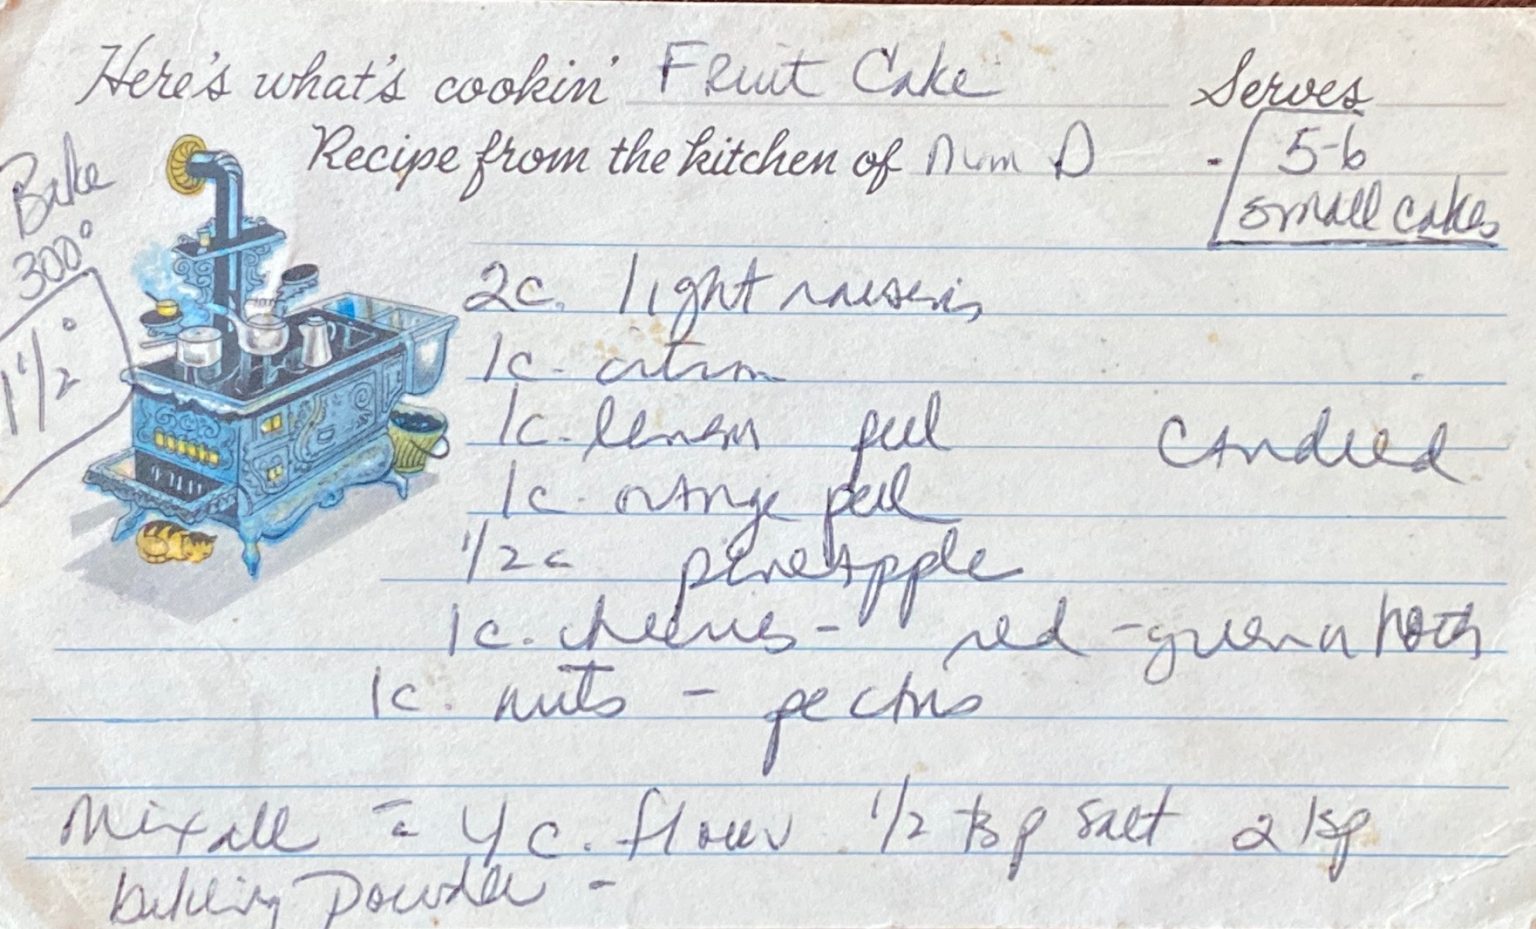 Here's what's cookin' Fruit Cake Serves
Recipe from the kitchen of Mum D - 5-6
small cakes
Bake
300°
1 1/2°
2c. light raisens
1c. citron
1c. lemon peel candied
1c. orange peel
1/2 c pineapple
1c. cherries - red - green or both
1c. nuts - pecans
Mix all = 4 c. flour 1/2 tsp salt 2 tsp
baking powder -